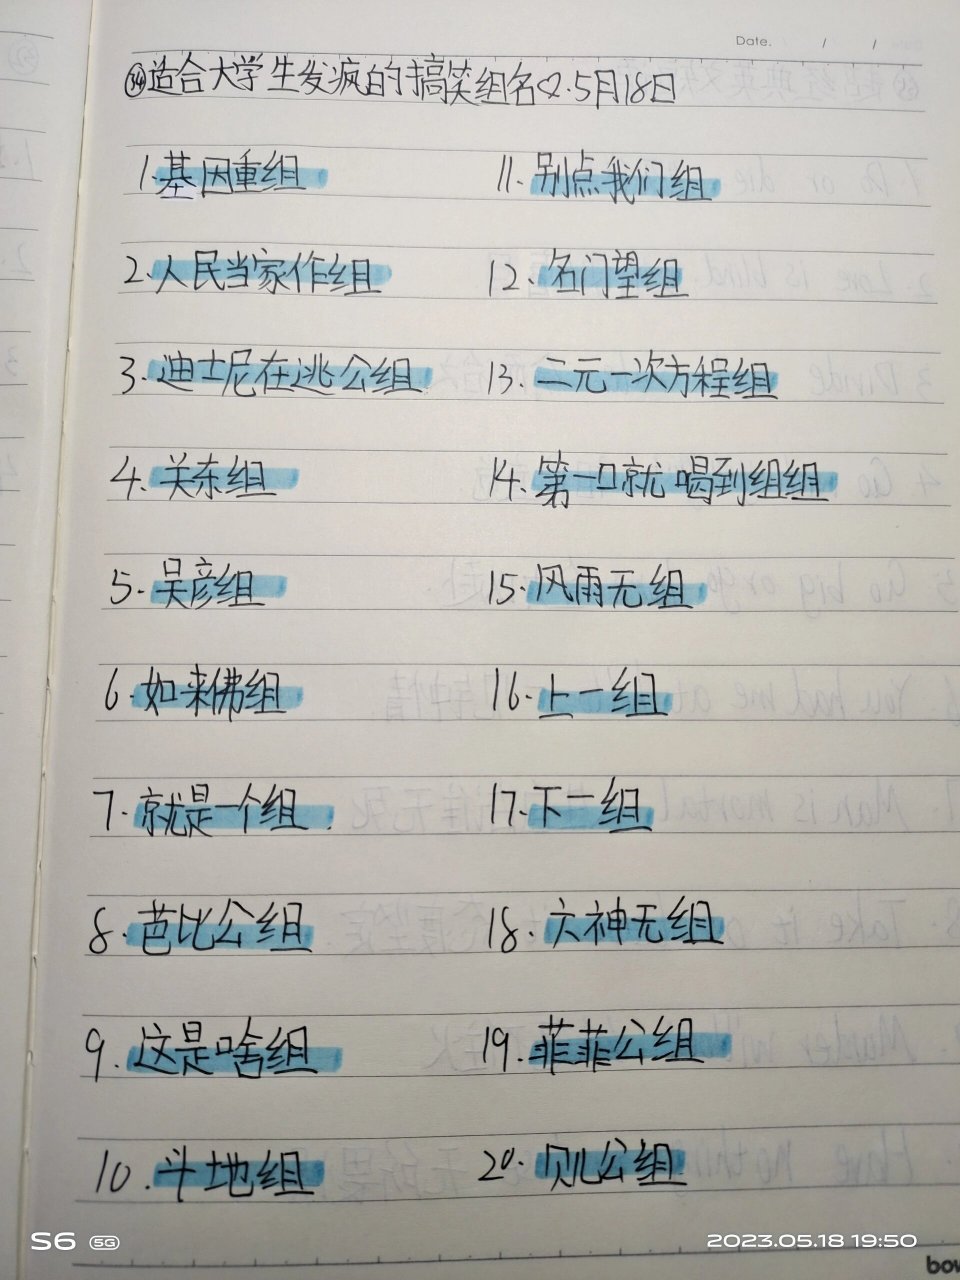 Date. / /
㉞适合大学生发疯的搞笑组名♡.5月18日
1.基因重组
11.别点我们组
2.人民当家作组
12.名门望组
3.迪士尼在逃公组
13.二元一次方程组
4.关东组
14.第一口就喝到组组
5.吴彦组
15.风雨无组
6.如来佛组
16.上一组
7.就是一个组
17.下一组
8.芭比公组
18.六神无组
9.这是啥组
19.菲菲公组
10.斗地组
20.贝儿公组
S6 5G
2023.05.18 19:50